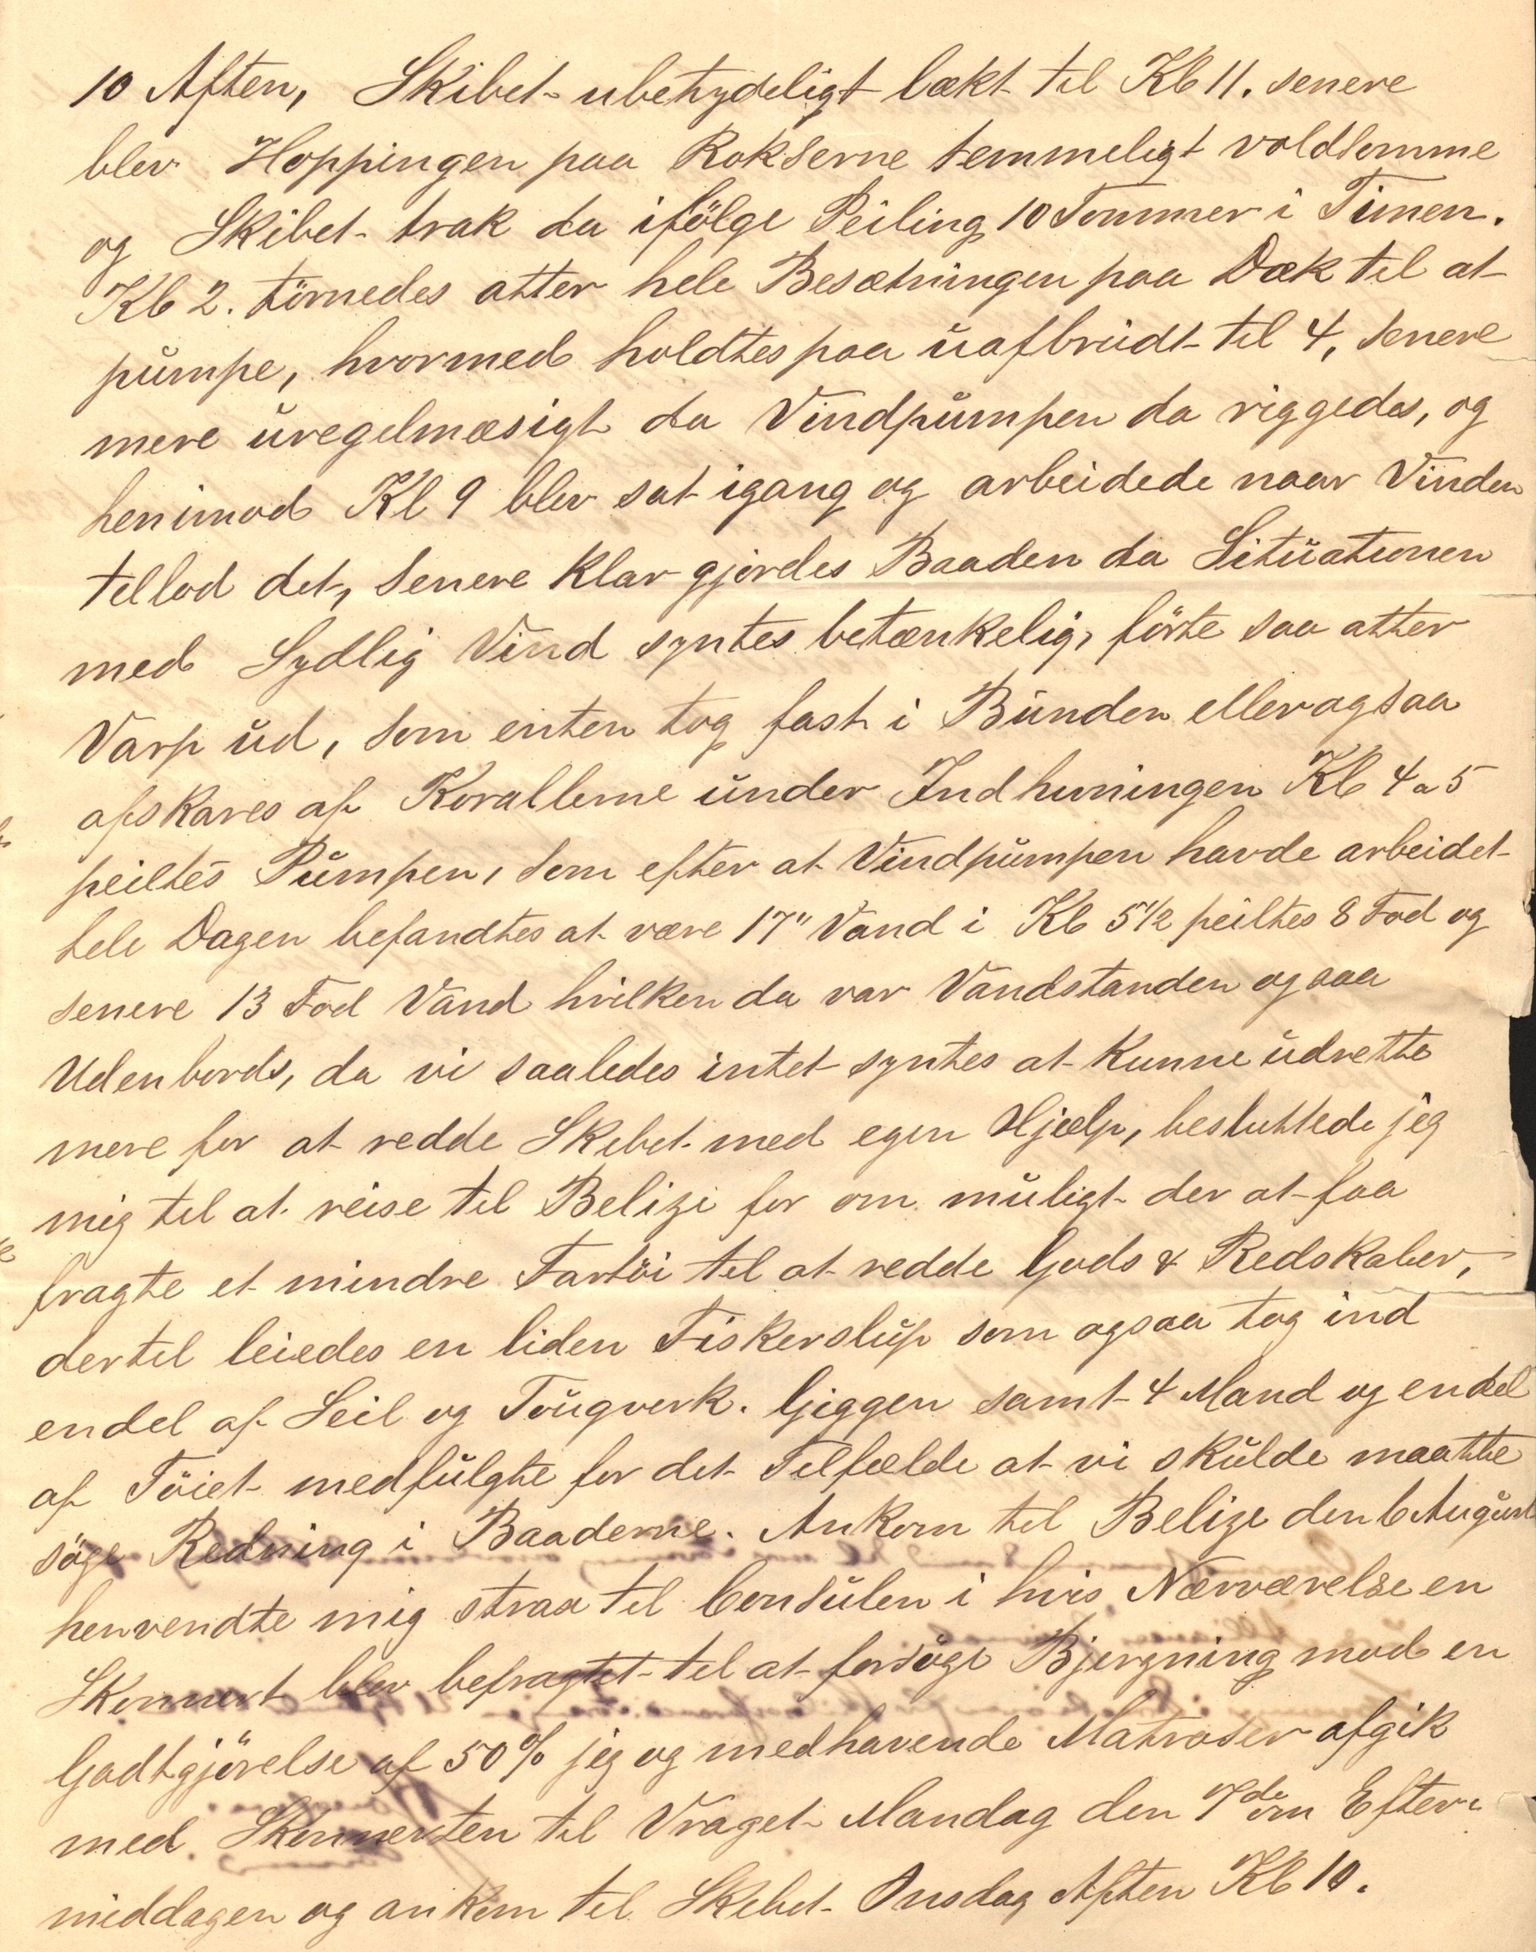 10 Aften, Skibet ubetydeligt lækt til Kl 11. senere
blev Hoppingen paa Rokserne temmeligt voldsomme
og Skibet trak da ifölge Peiling 10 Tommer i Timen.
Kl 2. törnedes atter hele Besætningen paa Dæk til at
pumpe, hvormed holdtes paa uafbrudt til 4, senere
mere uregelmæsigt da Vindpumpen da riggedes, og
henimod Kl 9 blev sat igang og arbeidede naar Vinden
tillod det, senere klargjordes Baaden da Situationen
med Sydlig Vind syntes betænkelig, förte saa atter
Varp ud, som enten tog fast i Bunden eller ogsaa
afskares af Korallerne under Indhivningen Kl 4 a 5
peiltes Pumpen, som efter at Vindpumpen havde arbeidet
hele Dagen befandtes at være 17" Vand i Kl 5 1/2 peiltes 8 Fod og
senere 13 Fod Vand hvilken da var Vandstanden ogsaa
Udenbords, da vi saaledes intet syntes at kunne udrette
mere for at redde Skibet med egen Hjælp, besluttede jeg
mig til at reise til Belize for om muligt der at faa
fragte et mindre Fartöi til at redde Gods & Redskaber,
dertil leiedes en liden Fiskerslup som ogsaa tog ind
endel af Seil og Tougverk. Giggen samt 4 Mand og endel
af Töiet medfulgte for det Tilfælde at vi skulde maatte
söge Redning i Baaderne. Ankom til Belize den 6 August
henvendte mig straa til Consulen i hvis Nærværelse en
Skonnert blev befragtet til at forsöge Bjergning mod en
Godtgjörelse af 50% jeg og medhavende Matroser afgik
med Skonnerten til Vraget Mandag den 7de om Efter-
middagen og ankom til Skibet Onsdag Aften Kl 10.